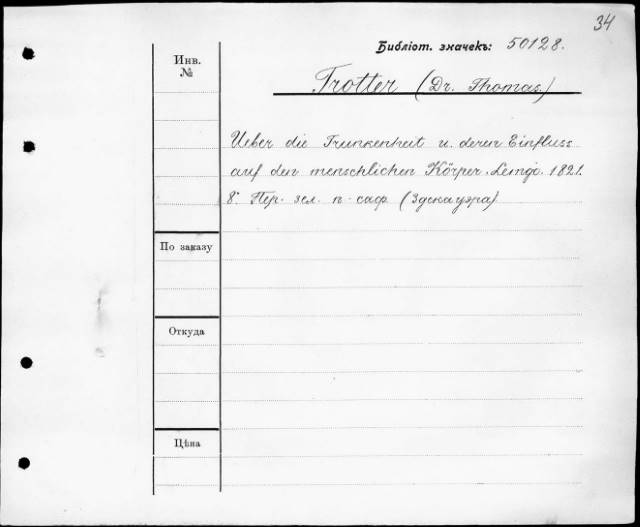 34
Библіот. значекъ: 50128.
Инв.
№
Trotter (Dr. Thomas.)
Ueber die Trunkenheit u. deren Einfluss
auf den menschlichen Körper. Lemgo. 1821.
8°. Пер. зел. п. саф. (Здекауэра)
По заказу
Откуда
Цѣна